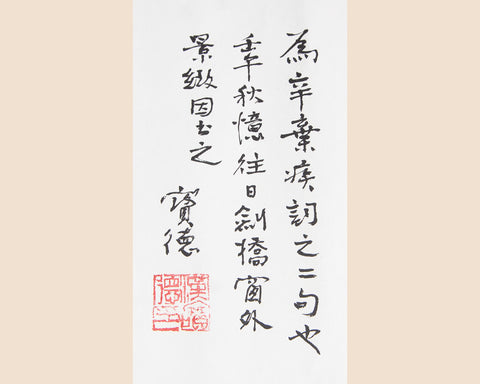 為辛棄疾詞之二句也
壬午秋憶往日劍橋窗外
景緻因書之
寶德
漢寶德印